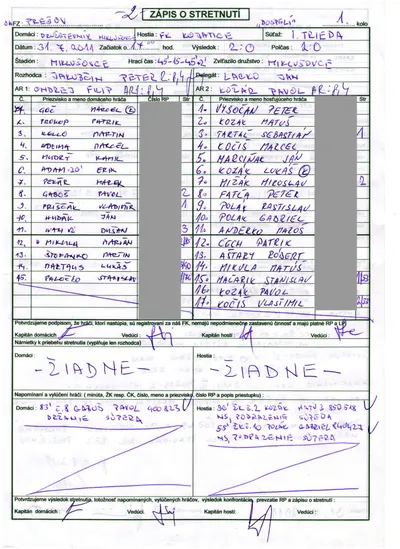 ObFZ: PREŠOV -2 ZÁPIS O STRETNUTÍ "DOSPELÍ" 1. kolo
Domáci: DRUŽSTEVNÍK MIKLUŠOVCE Hostia: FK KOJATICE Súťaž: I. TRIEDA
Dátum: 31.7.2011 Začiatok o 17:00 hod. Výsledok: 2:0 Polčas: 2:0
Štadión: MIKLUŠOVCE Hrací čas: 45-15-45 Zvíťazilo družstvo: MIKLUŠOVCE
Rozhodca: JAKUBČIN PETER Delegát: LARKO JÁN
AR 1: ONDREJ FILIP AR 2: KOŽÁR PAVOL
Č. Priezvisko a meno domáceho hráča Číslo RP Str Č. Priezvisko a meno hosťujúceho hráča Str
GOČ MARCEL 1. VYSOČAN PETER
2. PROKOP PATRIK 2. KOZÁK MATÚŠ
3. MARTIN 3. TARTAĽ SEBASTIÁN 1
4. MARCEL 4. KOČIS MARCEL
5. KAMIL 5. MARCINAK JÁN
6. ERIK 6. KOZÁK LUKÁŠ
7. PEKÁR MAREK 7. MIŽÁK MIROSLAV 2
8. GABOŠ PAVOL 2 8. PETER
9. VLADIMÍR 1 9. POLÁK RASTISLAV
10. HUDÁK JÁN 10. POLÁK GABRIEL
11. DUŠAN 3 11. ANDERKO
12. MIKULA MARIÁN 12. ČECH PATRIK
13. ŠTOFANKO MARTIN 13. RÓBERT
14. LUKÁŠ 14. MIKULA MATÚŠ
15. STANISLAV 15. MACÁRIK STANISLAV
16. KOZÁK PAVOL
17. KOČIS VLASTIMIL
Potvrdzujeme podpisom, že hráči, ktorí nastúpia, sú registrovaní za náš FK, nemajú nepodmienečne zastavenú činnosť a majú platné RP a LP
Kapitán domácich: Vedúci: Kapitán hostí: Vedúci:
Námietky k priebehu stretnutia (vyplňuje len rozhodca)
Domáci: Hostia:
-ŽIADNE- -ŽIADNE-
Napomínaní a vylúčení hráči: ( minúta, ŽK resp. ČK, číslo, meno a priezvisko, číslo RP a popis priestupku) :
Domáci: 83' č.8 GABOŠ PAVOL
DRŽANIE SÚPERA
Hostia: ŽK č.2 KOZÁK
NŠ, PODRAZENIE SÚPERA
55' ŽK č.10 POLÁK GABRIEL
NŠ, PODRAZENIE SÚPERA
Potvrdzujeme výsledok stretnutia, totožnosť napomínaných, vylúčených hráčov, výsledok konfrontácie, prevzatie RP a zápisu o stretnutí :
Kapitán domácich: Vedúci: Kapitán hostí: Vedúci: